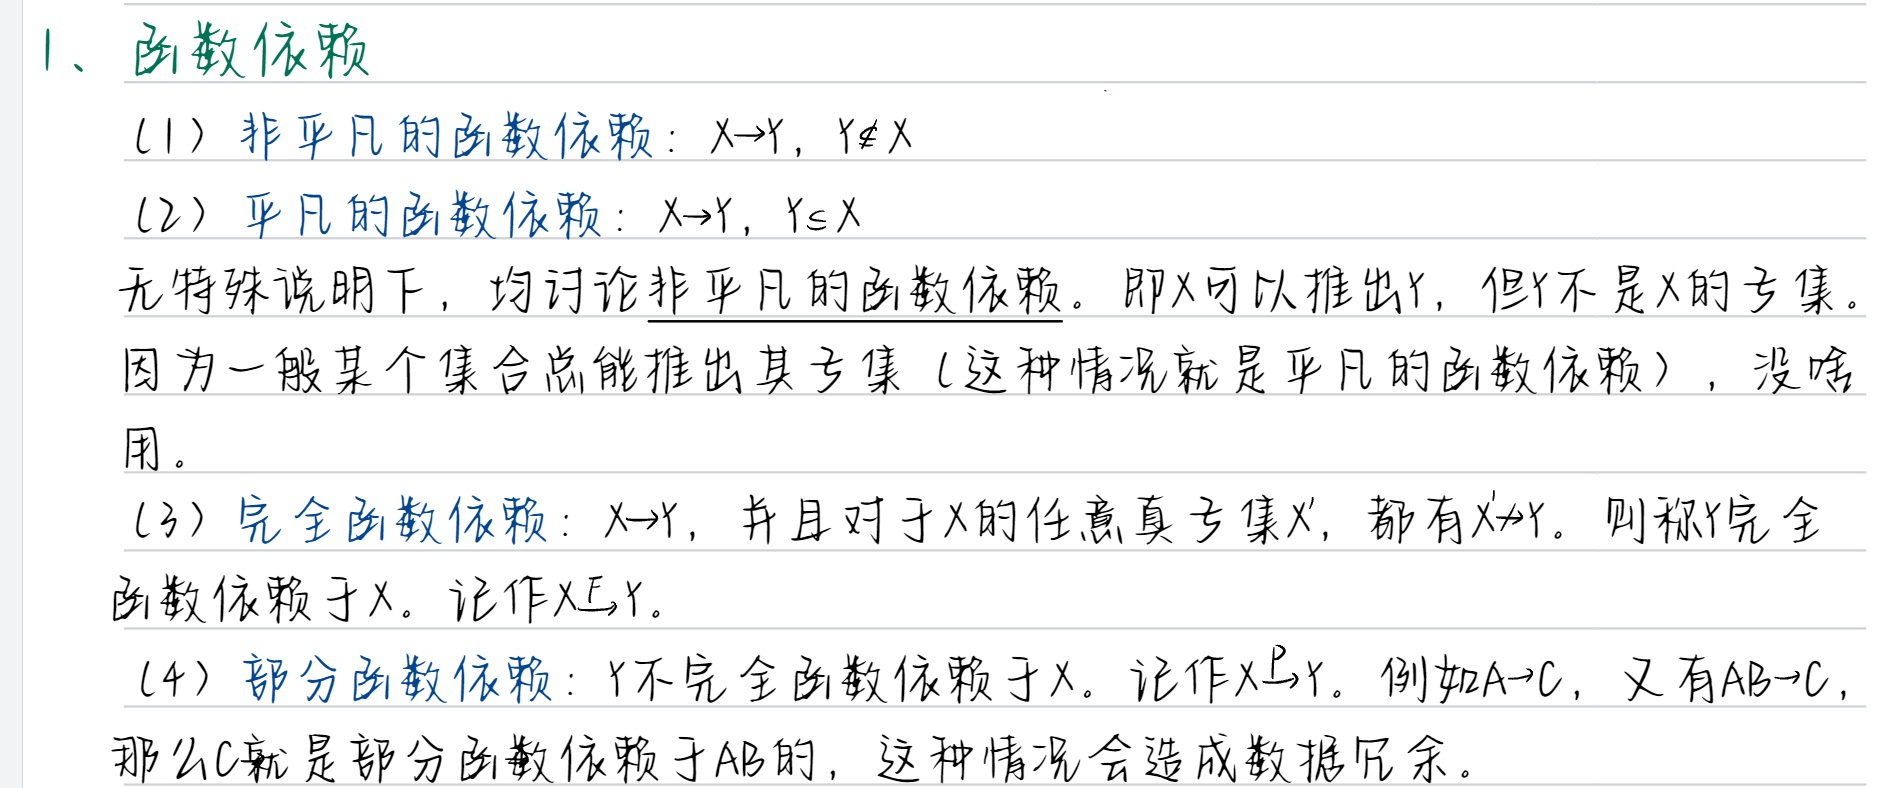 1、函数依赖
(1) 非平凡的函数依赖：X→Y，Y∉X
(2) 平凡的函数依赖：X→Y，Y⊆X
无特殊说明下，均讨论非平凡的函数依赖。即X可以推出Y，但Y不是X的子集。
因为一般某个集合总能推出其子集（这种情况就是平凡的函数依赖），没啥
用。
(3) 完全函数依赖：X→Y，并且对于X的任意真子集X'，都有X'↛Y。则称Y完全
函数依赖于X。记作X-F→Y。
(4) 部分函数依赖：Y不完全函数依赖于X。记作X-P→Y。例如A→C，又有AB→C，
那么C就是部分函数依赖于AB的，这种情况会造成数据冗余。